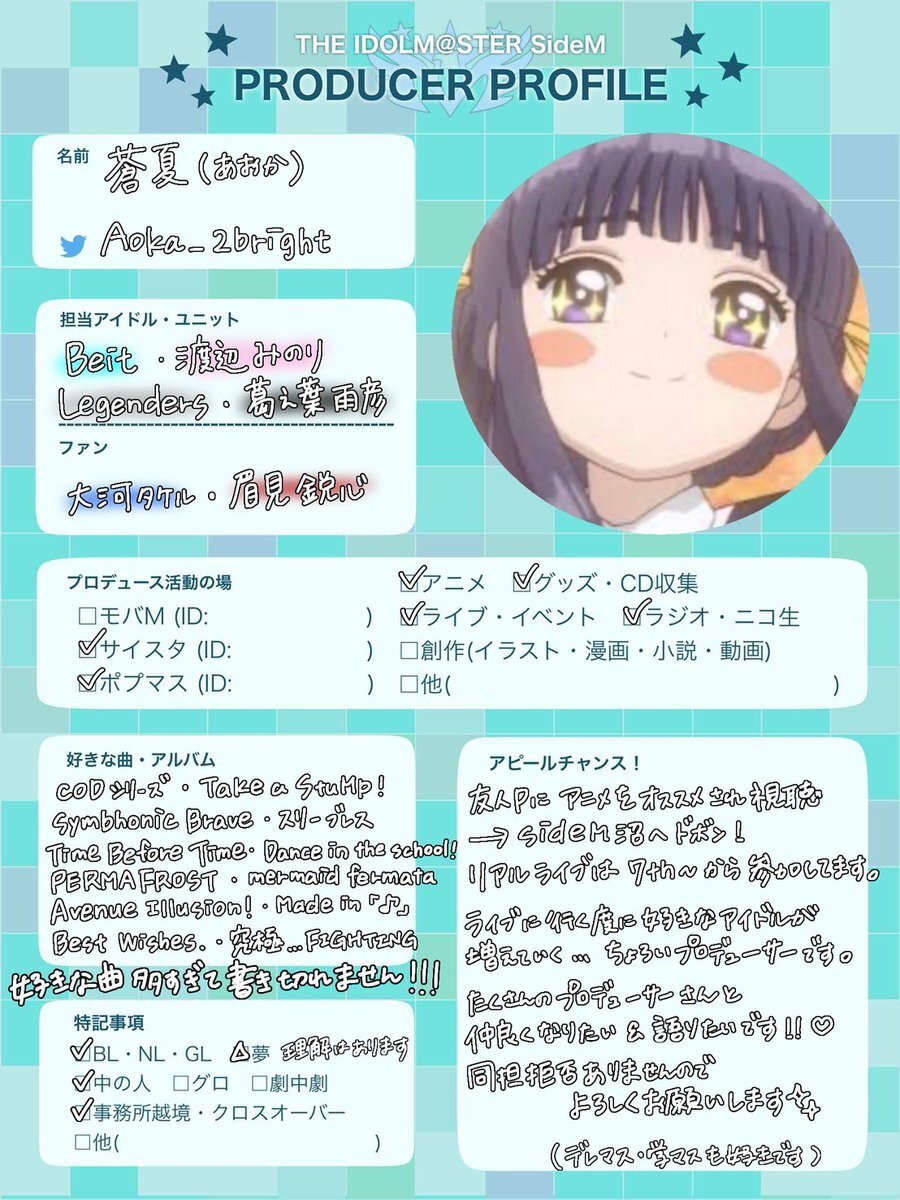 THE IDOLM@STER SideM
PRODUCER PROFILE
名前 蒼夏(あおか)
Aoka_2bright
担当アイドル・ユニット
Beit・渡辺みのり
Legenders・葛之葉雨彦
ファン
大河タケル・眉見鋭心
プロデュース活動の場
☑アニメ ☑グッズ・CD収集
□モバM (ID: ) ☑ライブ・イベント ☑ラジオ・ニコ生
☑サイスタ (ID: ) □創作(イラスト・漫画・小説・動画)
☑ポプマス (ID: ) □他( )
好きな曲・アルバム
CODシリーズ・Take a StuMp!
Symbhonic Brave・スリーブレス
Time Before Time・Dance in the school!
PERMAFROST・mermaid fermata
Avenue Illusion!・Made in「♫」
Best Wishes.・究極…FIGHTING
好きな曲多すぎて書き切れません!!!
特記事項
☑BL・NL・GL △夢 理解はあります
☑中の人 □グロ □劇中劇
☑事務所越境・クロスオーバー
□他( )
アピールチャンス!
友人Pにアニメをオススメされ視聴
→sideM沼へドボン!
リアルライブは7th~から参加してます。
ライブに行く度に好きなアイドルが
増えていく…ちょろいプロデューサーです。
たくさんのプロデューサーさんと
仲良くなりたい&語りたいです!!♡
同担拒否ありませんので
よろしくお願いします✨
(デレマス・学マスも好きです)